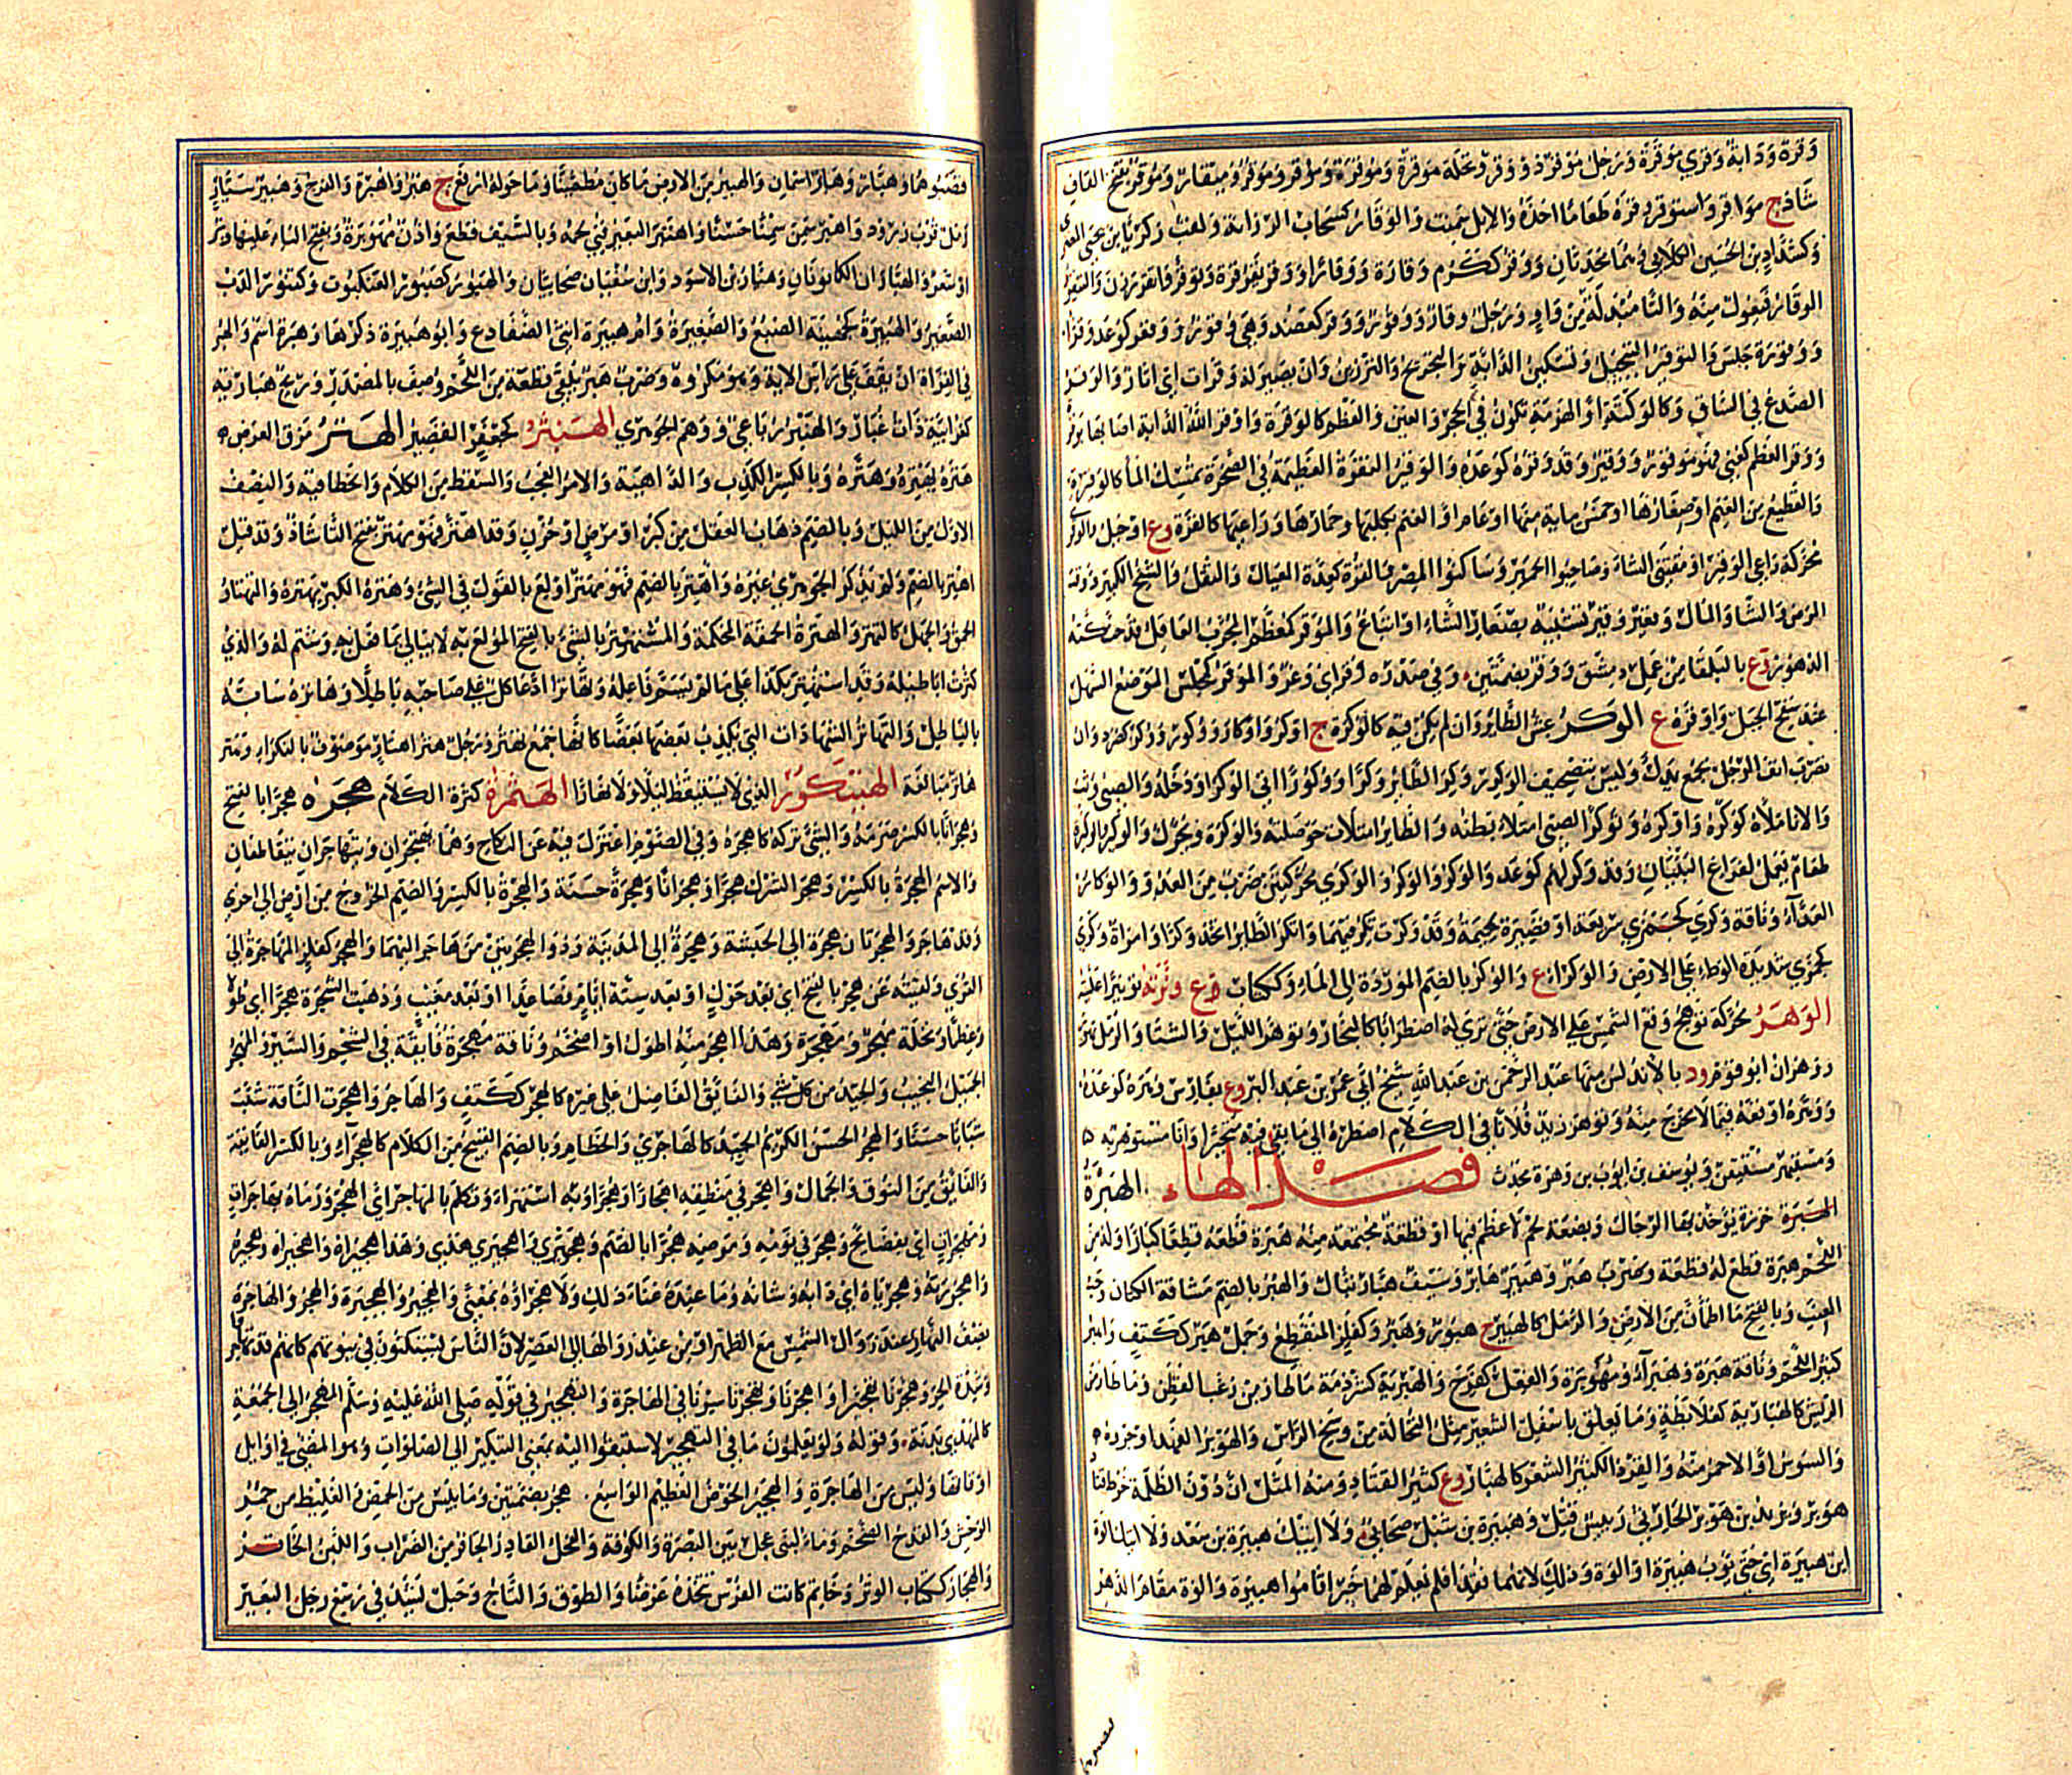 وقرة ودابة وقرى موقرة ورجل موقر ذو وقر ونخلة موقرة وموقرة وموقر وموقرة وميقار وموقر بفتح القاف
شاذ ج مواقر واستوقر وقره طعاما اخذه والابل سمنت والوقار كسحاب الرزانة ولقب زكريا بن يحيى
وكشداد بن الحسين الكلابي محدثان ووقر ككرم وقارة ووقارا ووقر يقر قرة وتوقر واتقر رزن والتيقور
الوقار فيعول منه والتا مبدلة من واو ورجل وقار ووقور ووقر كعضد وهي وقور ووقر كوعد وقرا
ووقورة جلس والتوقير التبجيل وتسكين الدابة والتجريح والتزيين وان يصير له وقرات اي اثار والوقر
الصدع في الساق وكالوكتة او الهزمة تكون في الحجر والعين والعظم كالوقرة واوقر الله الدابة اصابها بوقر
ووقر العظم كعني فهو موقور ووقير وقد وقره كوعده والوقير النقرة العظيمة في الصخرة تمسك الماء كالوقيرة
والقطيع من الغنم او صغارها او خمس ماية منها او عام او الغنم بكلبها وحمارها وراعيها كالقرة وع او جبل والوقري
محركة راعي الوقير او مقتني الشاء وصاحب الحمير وساكنوا المصر والقرة كعدة العيال والثقل والشيخ الكبير ووقت
المرض والشا والمال وفقير وقير تشبيه بصغار الشاء او اتباع والموقر كمعظم المجرب العاقل قد حنكته
الدهور وع بالبلقا من عمل دمشق ووقر بضمتين وفي صدره وقر اي وغر والموقر كمجلس الموضع السهل
عند سفح الجبل واوقرة ع الوكر عش الطاير وان لم يكن فيه كالوكرة ج اوكر واوكار ووكور ووكر كصرد وان
تضرب انف الرجل بجمع يدك وليس بتصحيف الوكز ووكر الطاير وكرا ووكورا اتى الوكر او دخله والصبي وثب
والانا ملاه كوكره واوكره وتوكر الصبي امتلا بطنه والطاير امتلات حوصلته والوكرة ويحرك والوكير والوكيرة
طعام يعمل لفراغ البنيان وقد وكر لهم كوعد والوكر والوكرى محركتين ضرب من العدو والوكار
العداء وناقة وكرى كجمزى سريعة او قصيرة لحيمة وقد وكرت تكر فيهما واتكر الطاير اتخذ وكرا وامراة وكرى
كجمزى شديدة الوطء على الارض والوكراء ع والوكر بالضم الموردة الى الماء وككتاب ع
الوهر محركة توهج وقع الشمس على الارض حتى ترى له اضطرابا كالبخار وتوهر الليل والشتا والرمل تهور
ووهران ابو قوم ود بالاندلس منها عبد الرحمن بن عبد الله شيخ ابي عمر بن عبد البر وع بفارس ووهره كوعده
ووهره اوقعه فيما لا مخرج منه وتوهر زيد فلانا في الكلام اضطره الى ما بقي فيه متحيرا وانا مستوهر به
ومستيهر مستيقن ويوسف بن ايوب بن وهرة محدث فصل الهاء الهبرة
الهبرة خرزة يؤخذ بها الرجال وبضعة لحم لا عظم فيها او قطعة مجتمعة منه هبره قطعه قطعا كبارا وله من
اللحم هبرة قطع له قطعة وضرب هبر وهبير هابر وسيف هبار بتاك والهبر بالضم مشاقة الكتان وحب
العنب وبالفتح ما اطمان من الارض والرمل كالهبير ج هبور وهبر وكفلز المنقطع وجمل هبر ككتف واهبر
كثير اللحم وناقة هبرة وهبراء ومهوبرة والفعل كفرح والهبرية كشرذمة ما طار من زغب القطن وما طار من
الريش كالهبارية كعلابطة وما تعلق باسفل الشعر مثل النخالة من وسخ الراس والهوبر الفهد او جروه
والسوس او الاحمر منه والقرد الكثير الشعر كالهبار وع كثير القتاد ومنه المثل ان دون الظلمة خرط قتاد
هوبر ويزيد بن هوبر الحارثي رييس قتل وهبيرة بن شبل صحابي ولا اتيك هبيرة بن سعد ولا اتيك الوة
ابن هبيرة اي حتى يؤب هبيرة او الوة وذلك لانهما فقدا فلم يعلم لهما خبر اقاموا هبيرة والوة مقام الدهر
فنصبوهما وهبار وهابر اسمان والهبير من الارض ما كان مطمئنا وما حوله ارفع ج هبر واهبرة والفرج وهبير سيار
رمل قرب زرود واهبر سمن سمنا حسنا واهتبر البعير فني لحمه وبالسيف قطع واذن مهوبرة وبفتح الباء عليها وبر
او شعر والهباران الكانونان وهبار بن الاسود وابن سفيان صحابيان والهبور كصبور العنكبوت وكتنور الذر
الصغير والهبيرة كجهينة الضبع والصغيرة وام هبيرة انثى الضفادع وابو هبيرة ذكرها وهبرة اسم والهبر
في القراة ان يقف على راس الاية وهو مكروه وضرب هبر يلقي قطعة من اللحم وصف بالمصدر وريح هبارية
كغرابية ذات غبار والهنبر رباعي ووهم الجوهري الهبتر كجعفر القصير الهتر مزق العرض
هتره يهتره وهتره وبالكسر الكذب والداهية والامر العجب والسقط من الكلام والخطا فيه والنصف
الاول من الليل وبالضم ذهاب العقل من كبر او مرض او حزن وقد اهتر فهو مهتر بفتح التا شاذ وقد قيل
اهتر بالضم ولم يذكر الجوهري غيره واهتر بالضم فهو مهتر اولع بالقول في الشيء وهتره الكبر يهتره والتهتار
الحمق والجهل كالتهتر والهترة الحمقة المحكمة والمستهتر بالشيء بالفتح المولع به لا يبالي بما فعل به وشتم له والذي
كثرت اباطيله وقد استهتر بكذا على ما لم يسم فاعله وتهاترا ادعى كل على صاحبه باطلا وهاتره سابه
بالباطل والتهاتر الشهادات التي يكذب بعضها بعضا كانها جمع تهتر ورجل هتر اهتار وموصوف بالنكراء وهتر
هاتر مبالغة الهيتكور الذي لا يستيقظ ليلا ولا نهارا الهثمرة كثرة الكلام هجره هجرا بالفتح
وهجرانا بالكسر صرمه والشيء تركه كاهجره وفي الصوم اعتزل فيه عن النكاح وهما يهتجران ويتهاجران يتقاطعان
والاسم الهجرة بالكسر وهجر الشرك هجرا وهجرانا وهجرة حسنة والهجرة بالكسر والضم الخروج من ارض الى اخرى
وقد هاجر والهجرتان هجرة الى الحبشة وهجرة الى المدينة وذو الهجرتين من هاجر اليهما والهجر كفلز المهاجرة الى
القرى ولقيته عن هجر بالفتح اي بعد حول او بعد ستة ايام فصاعدا او بعد مغيب وذهبت الشجرة هجرا اي طولا
وعظما ونخلة مهجر ومهجرة وهذا اهجر منه اطول او اضخم وناقة مهجرة فايقة في الشحم والسير والمهجر
الجميل النجيب والجيد من كل شي والفائق الفاضل على غيره كالهجر ككتف والهاجر واهجرت الناقة شبت
شبابا حسنا والهجر الحسن الكريم الجيد كالهاجري والخطام وبالضم القبيح من الكلام كالهجراء وبالكسر الفايقة
والفائق من النوق والجمال واهجر في منطقه اهجارا وهجرا وبه استهزاء وتكلم بالمهاجر اي الهجر ورماه بهاجرات
ومهجرات اي بفضايح وهجر في نومه ومرضه هجرا بالضم وهجيرى واهجيرى هذى وهذا هجيراه واهجيراه وهجيره
واهجورته وهجرياه اي دابه وشانه وما عنده غناء ذلك ولا هجراؤه بمعنى والهجير والهجيرة والهجر والهاجرة
نصف النهار عند زوال الشمس مع الظهر او من عند زوالها الى العصر لان الناس يستكنون في بيوتهم كانهم قد تهاجروا
وشدة الحر وهجرنا تهجيرا واهجرنا وتهجرنا سرنا في الهاجرة والتهجير في قوله صلى الله عليه وسلم المهجر الى الجمعة
كالمهدي بدنة وقوله ولو يعلمون ما في التهجير لاستبقوا اليه بمعنى التبكير الى الصلوات وهو المضي في اوايل
اوقاتها وليس من الهاجرة والهجير الحوض العظيم الواسع ج هجر بضمتين وما يبس من الحمض والغليظ من حمر
الوحش والقدح الضخم وماء لبني عجل بين البصرة والكوفة والفحل الفادر الجافر من الضراب واللبن الخاثر
والهجار ككتاب الوتر وخاتم كانت الفرس تتخذه غرضا والطوق والتاج وحبل يشد في رسغ رجل البعير